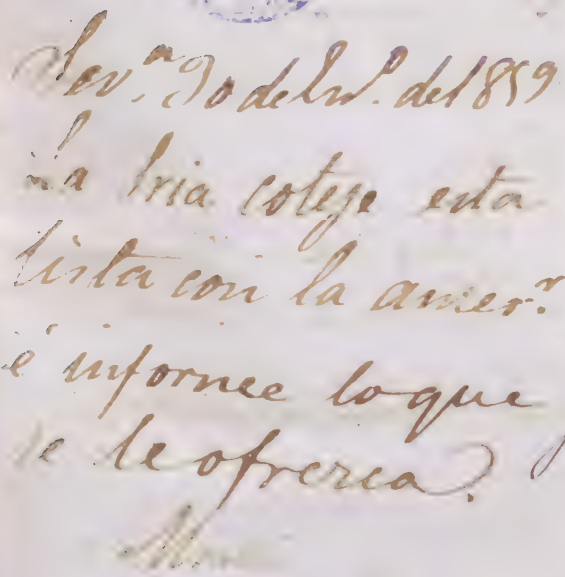 Sev.ª 30 de En.º del 1859
La Sria coteje esta
lista con la anter.r
é informe loque
se le ofrezca.